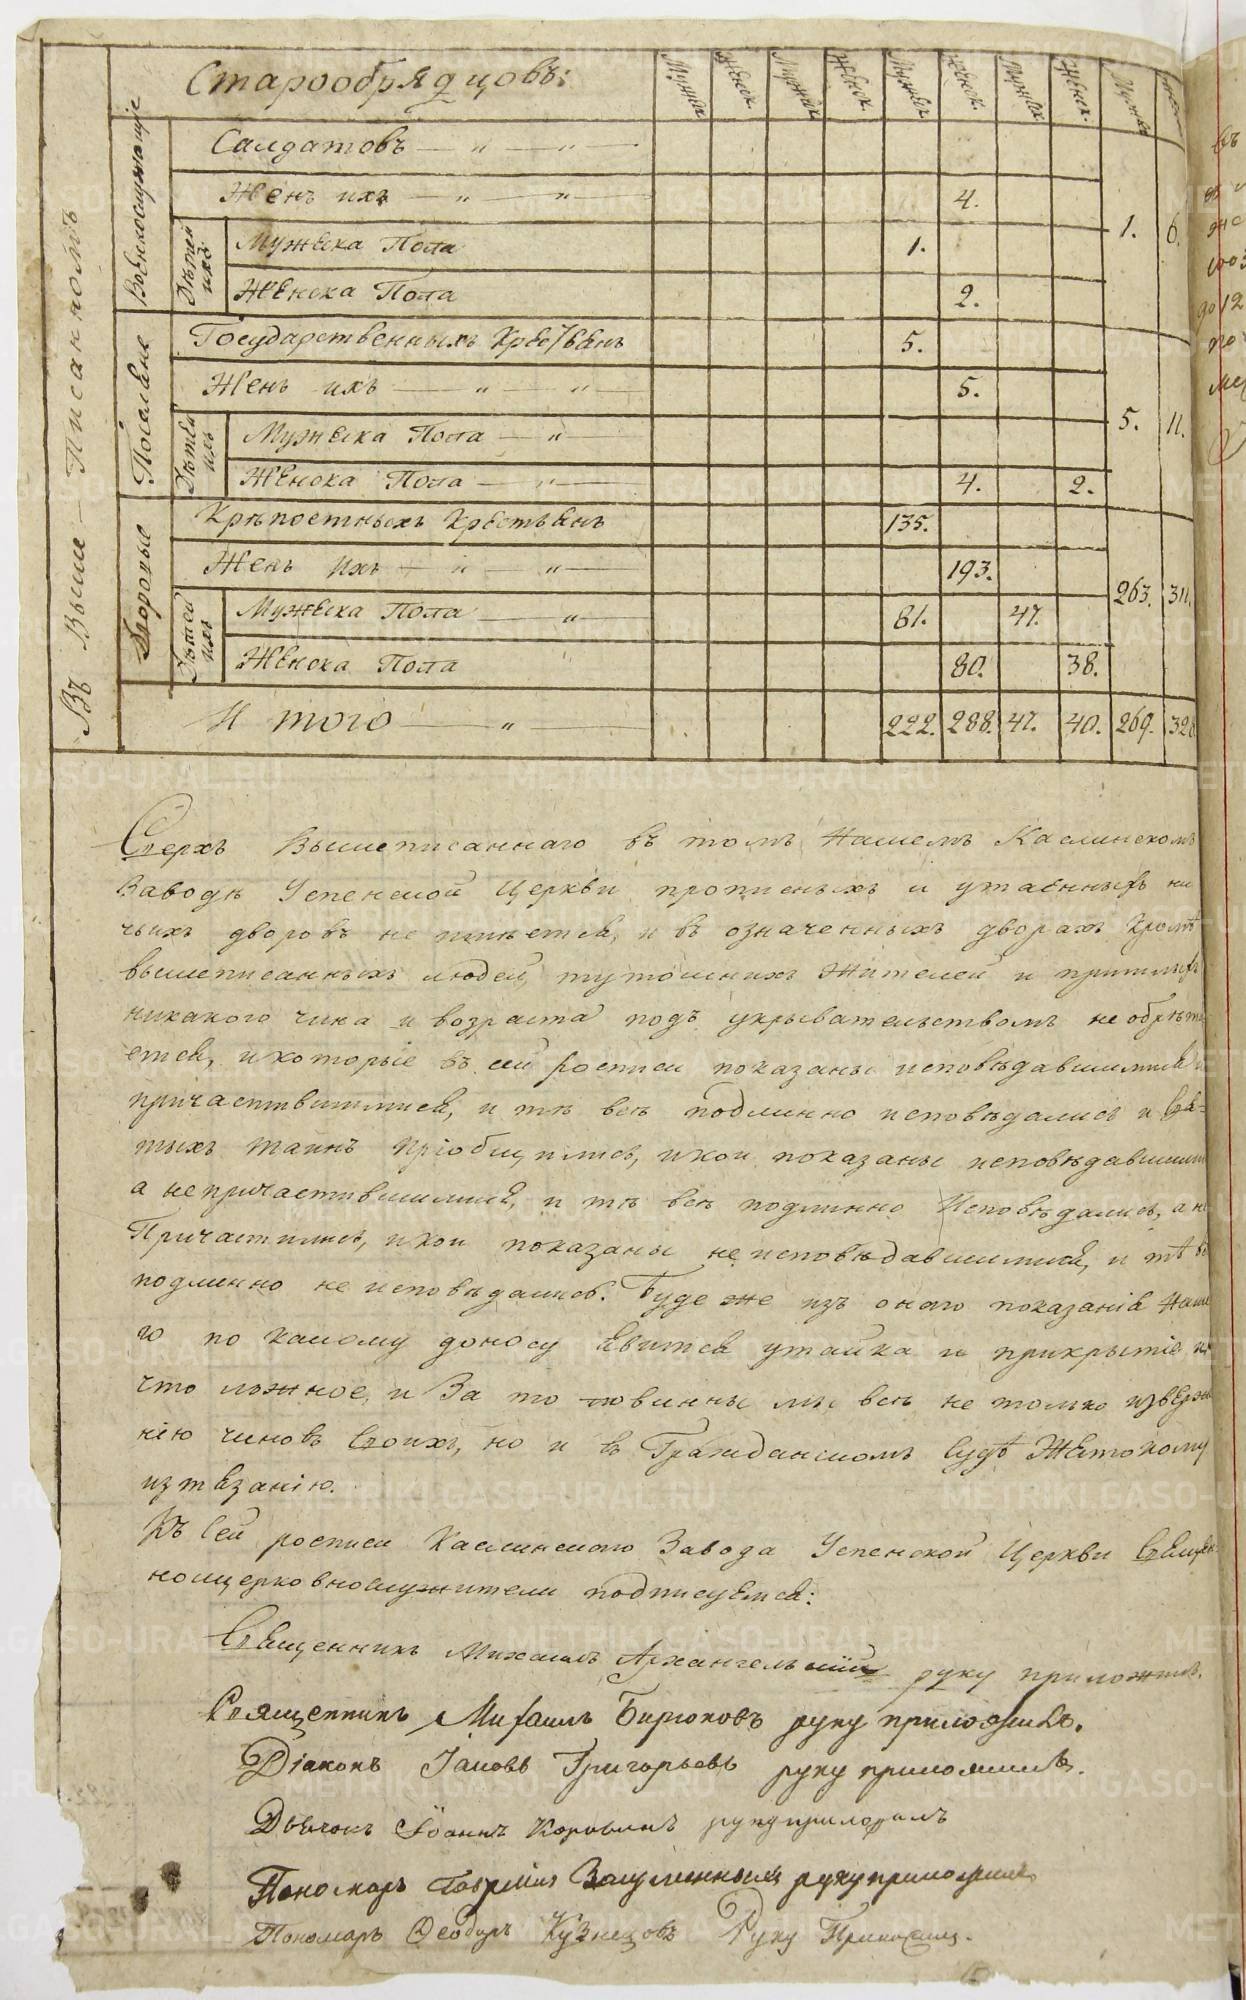 Старообрядцовъ: Мужск. Женск. Мужск. Женск. Мужск. Женск. Мужск. Женск. Мужск.
Въ Выше-Писанномъ
Военнослужащіе
Салдатовъ — „ — „ —
Женъ ихъ — „ — „ — 4.
Дѣтей ихъ
Мужеска Пола 1. 1. 6.
Женска Пола 2.
Поселяне
Государственныхъ Крестьянъ 5.
Женъ ихъ — „ — „ — 5.
Дѣтей ихъ
Мужеска Пола — „ — 5. 11.
Женска Пола — „ — 4. 2.
Дворовые
Крѣпостныхъ Крестьянъ 135.
Женъ ихъ — „ — „ — 193.
Дѣтей ихъ
Мужеска Пола — „ 81. 47. 263. 311.
Женска Пола 80. 38.
И того — „ — 222. 288. 47. 40. 269. 328
Сверхъ Вышеписаннаго въ томъ Нашемъ Каслинскомъ
Заводѣ Успенской Церкви прописныхъ и утаенныхъ ни
чьихъ дворовъ не имѣется, и въ означенныхъ дворахъ кромѣ
вышеписанныхъ людей, тутошнихъ жителей и пришлыхъ
никакого чина и возраста подъ укрывательствомъ не обрѣта
ется, и которые въ сей росписи показаны исповѣдавшимися и
причаствишимися, и тѣ всѣ подлинно исповѣдались и Свя=
тыхъ таинъ пріобщились, и кои показаны исповѣдавшими
а непричастившимися, и тѣ всѣ подлинно Исповѣдались, а не
Причастились, и кои показаны неисповѣдавшимися, и тѣ вс
подлинно не исповѣдались. Буде же изъ онаго показанія Наше
го по какому доносу явится утайка и прикрытіе ил
что лжное, и За то повинны мы всѣ не только изверже
нію чиновъ Своихъ, но и въ Гражданскомъ Судѣ Жестокому
изтязанію.
Къ Сей росписи Каслинскаго Завода Успенской Церкви Священ
ноцерковнослужители подписуемся:
Священникъ Михаилъ Архангельскій руку приложилъ.
Священникъ Михаилъ Бирюковъ руку приложилъ.
Діаконъ Іаковъ Григорьевъ руку приложилъ.
Дьячокъ Іоаннъ Коровинъ руку приложилъ
Пономарь Гаврiилъ руку приложилъ
Пономарь Ѳеодоръ Кузнецовъ Руку Приложилъ.
METRIKI.GASO-URAL.RU